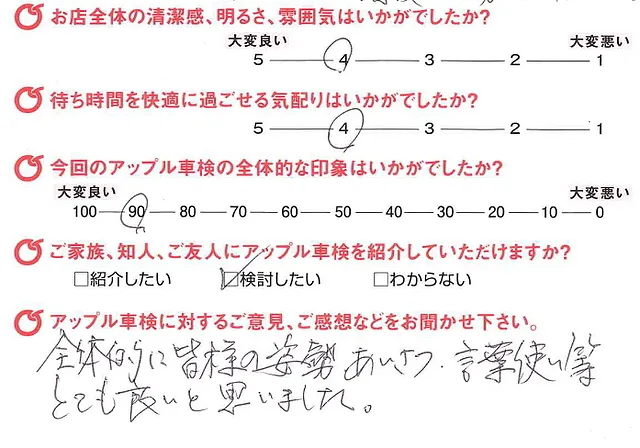 お店全体の清潔感、明るさ、雰囲気はいかがでしたか?
大変良い 大変悪い
5 4 3 2 1
待ち時間を快適に過ごせる気配りはいかがでしたか?
5 4 3 2 1
今回のアップル車検の全体的な印象はいかがでしたか?
大変良い 大変悪い
100 90 80 70 60 50 40 30 20 10 0
ご家族、知人、ご友人にアップル車検を紹介していただけますか?
□紹介したい □検討したい □わからない
アップル車検に対するご意見、ご感想などをお聞かせ下さい。
全体的に皆様の姿勢 あいさつ、言葉使い等
とても良いと思いました。